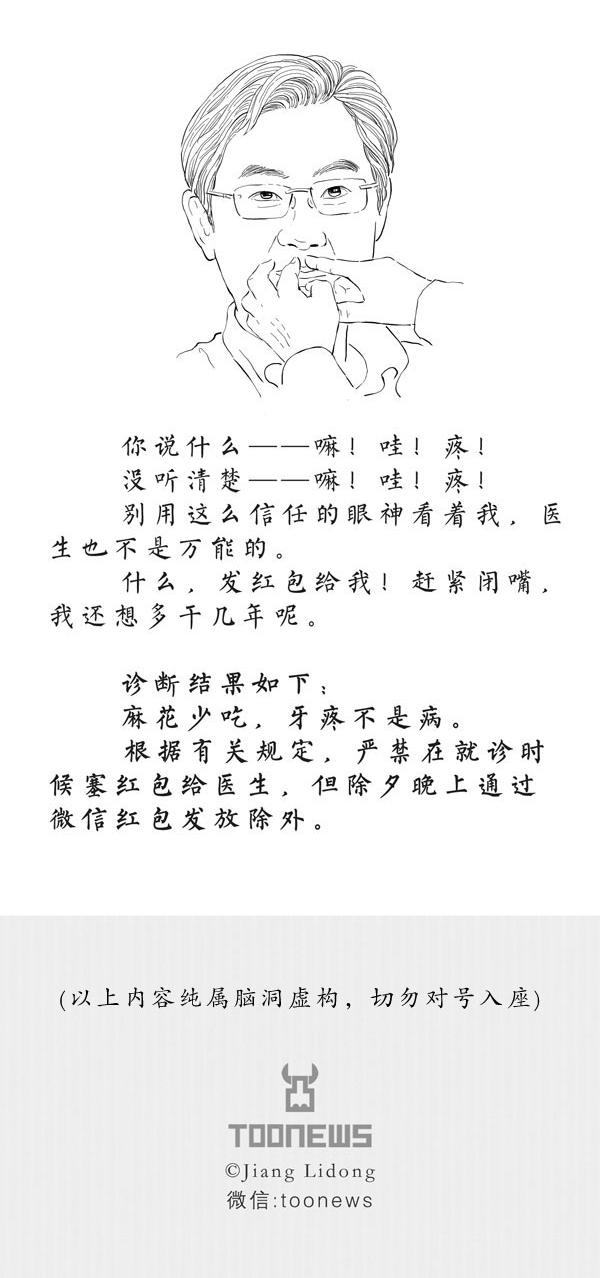 你说什么——嘛！哇！疼！
没听清楚——嘛！哇！疼！
别用这么信任的眼神看着我，医
生也不是万能的。
什么，发红包给我！赶紧闭嘴，
我还想多干几年呢。
诊断结果如下：
麻花少吃，牙疼不是病。
根据有关规定，严禁在就诊时
候塞红包给医生，但除夕晚上通过
微信红包发放除外。
(以上内容纯属脑洞虚构，切勿对号入座)
TOONEWS
©Jiang Lidong
微信:toonews